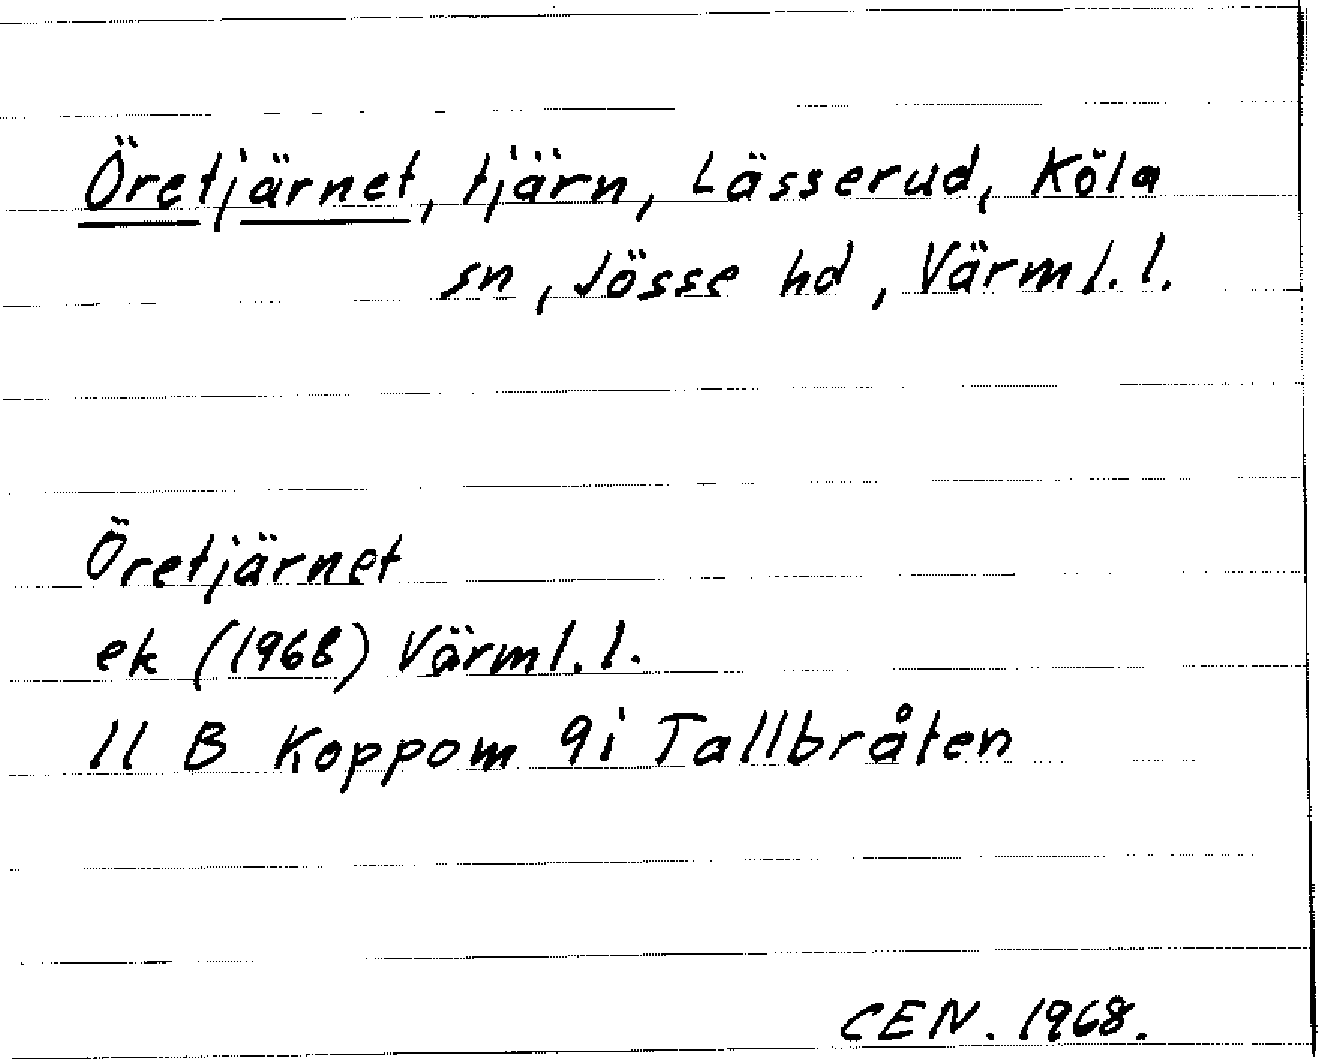 Öretjärnet, tjärn, Lässerud, Köla
sn, Jösse hd, Värml. l.
Öretjärnet
ek (1968) Värml. l.
11 B Koppom 9i Tallbråten
CEN. 1968.